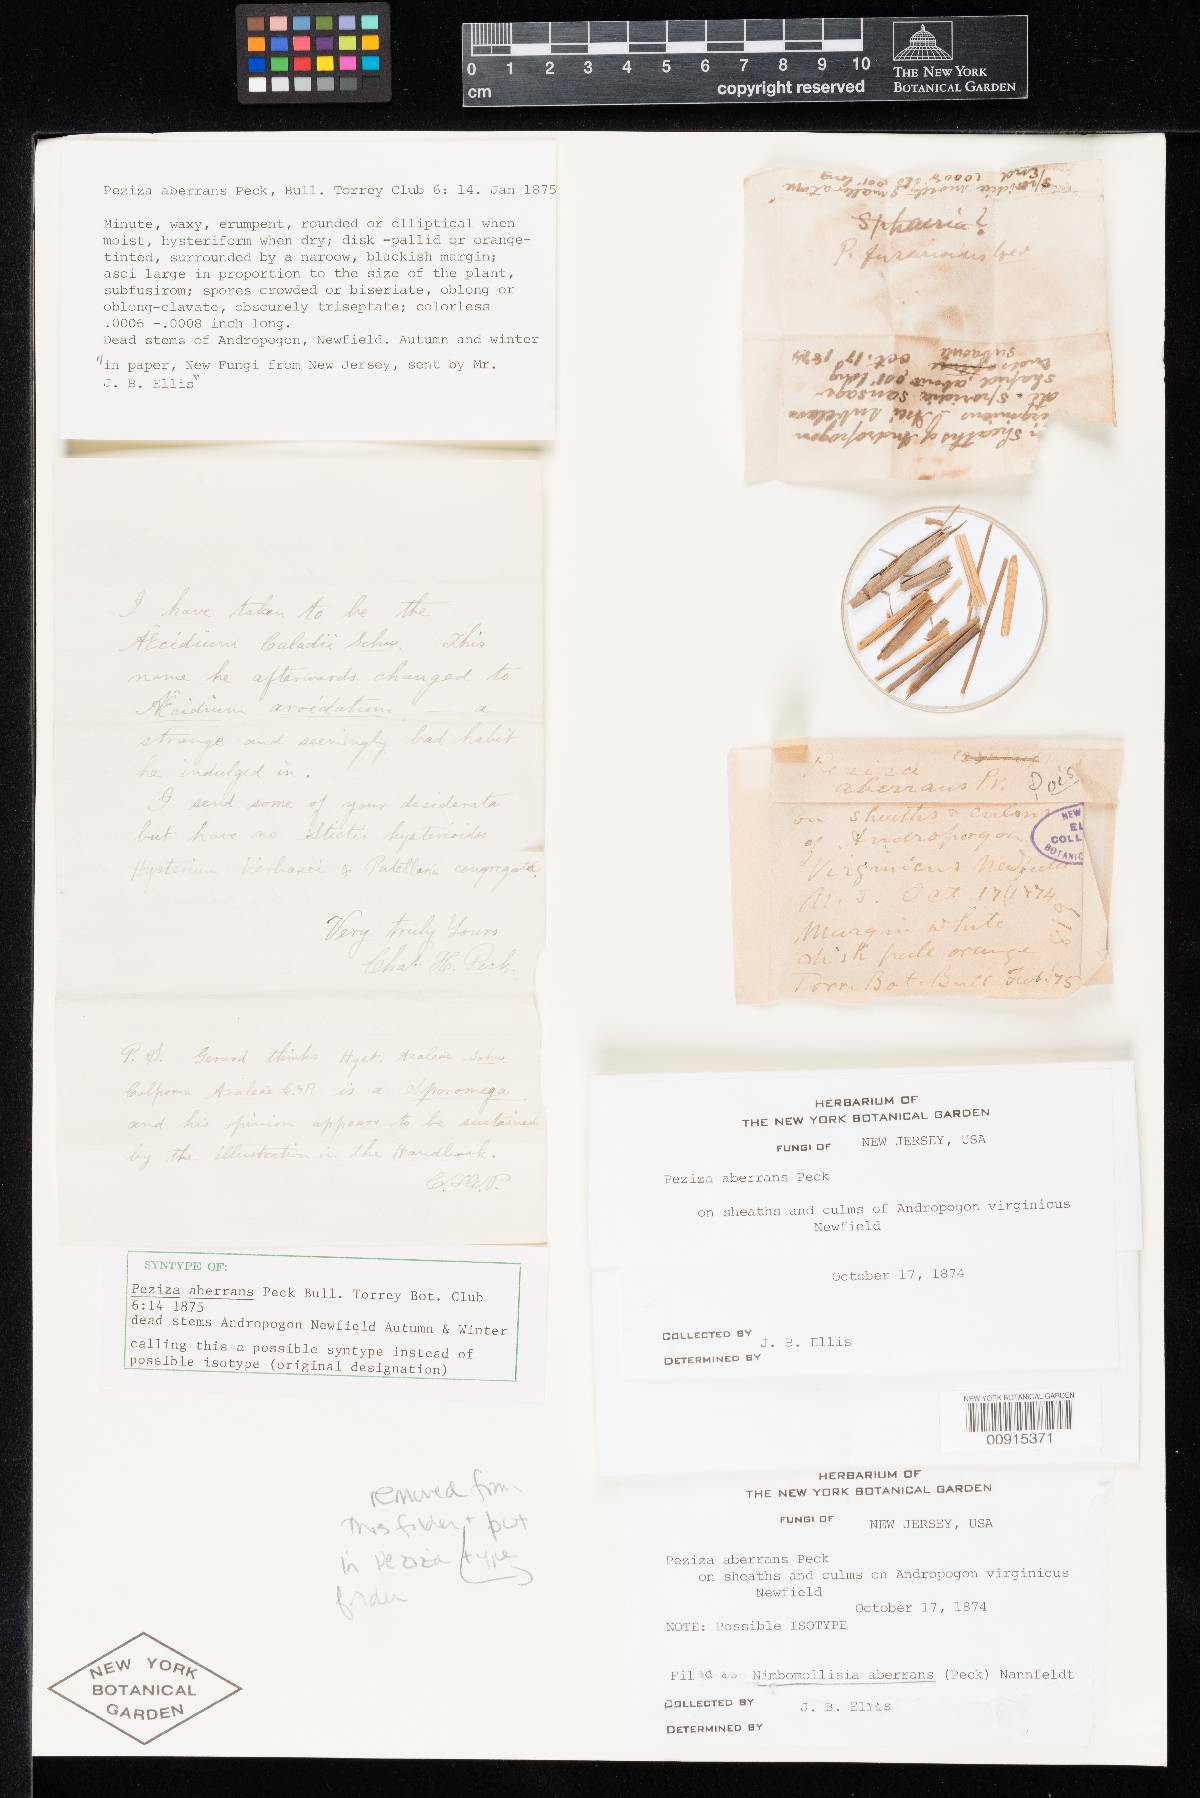 0 1 2 3 4 5 6 7 8 9 10
cm
copyright reserved
THE NEW YORK
BOTANICAL GARDEN
Peziza aberrans Peck, Bull. Torrey Club 6: 14. Jan 1875
Minute, waxy, erumpent, rounded or elliptical when
moist, hysteriform when dry; disk -pallid or orange-
tinted, surrounded by a naroow, blackish margin;
asci large in proportion to the size of the plant,
subfusirom; spores crowded or biseriate, oblong or
oblong-clavate, obscurely triseptate; colorless
.0006 -.0008 inch long.
Dead stems of Andropogon, Newfield. Autumn and winter
"in paper, New Fungi from New Jersey, sent by Mr.
J. B. Ellis"
I have taken to be the
Æcidium Caladii Schw. This
name he afterwards changed to
Æcidium aroidatum, — a
strange and seemingly bad habit
he indulged in.
I send some of your desiderata
but have no Stictis hysterioides
Hysterium & Patellaria congregata.
Very truly Yours
Chas. H. Peck.
P. S. Gerard thinks Hyst. Azaleae Schw.
Colpoma Azaleae is a Sporomega
and his opinion appears to be sustained
by the illustration in the Handbook.
C.H.P.
SYNTYPE OF:
Peziza aberrans Peck Bull. Torrey Bot. Club
6:14 1875
dead stems Andropogon Newfield Autumn & Winter
calling this a possible syntype instead of
possible isotype (original designation)
removed from
this folder + put
in Peziza type
folder
NEW YORK
BOTANICAL
GARDEN
in sheaths of Andropogon
Asci subclava
att. Sporidia sausage
shaped, about .001' long
ends subacute
Oct. 17 1874
Sphaeria?
P.
Sporidia mostly smaller at one
End
Peziza
aberrans Pk.
on sheaths & culms
of Andropogon
Virginicus Newfield
N. J. Oct. 17/1874
Margin white
disk pale orange
Torr. Bot. Bull. Feb. '75
NEW
EL
COLL
BOTANIC
HERBARIUM OF
THE NEW YORK BOTANICAL GARDEN
FUNGI OF NEW JERSEY, USA
Peziza aberrans Peck
on sheaths and culms of Andropogon virginicus
Newfield
October 17, 1874
COLLECTED BY J. B. Ellis
DETERMINED BY
NEW YORK BOTANICAL GARDEN
00915371
HERBARIUM OF
THE NEW YORK BOTANICAL GARDEN
FUNGI OF NEW JERSEY, USA
Peziza aberrans Peck
on sheaths and culms on Andropogon virginicus
Newfield
October 17, 1874
NOTE: Possible ISOTYPE
Filed as Nimbomollisia aberrans (Peck) Nannfeldt
COLLECTED BY J. B. Ellis
DETERMINED BY